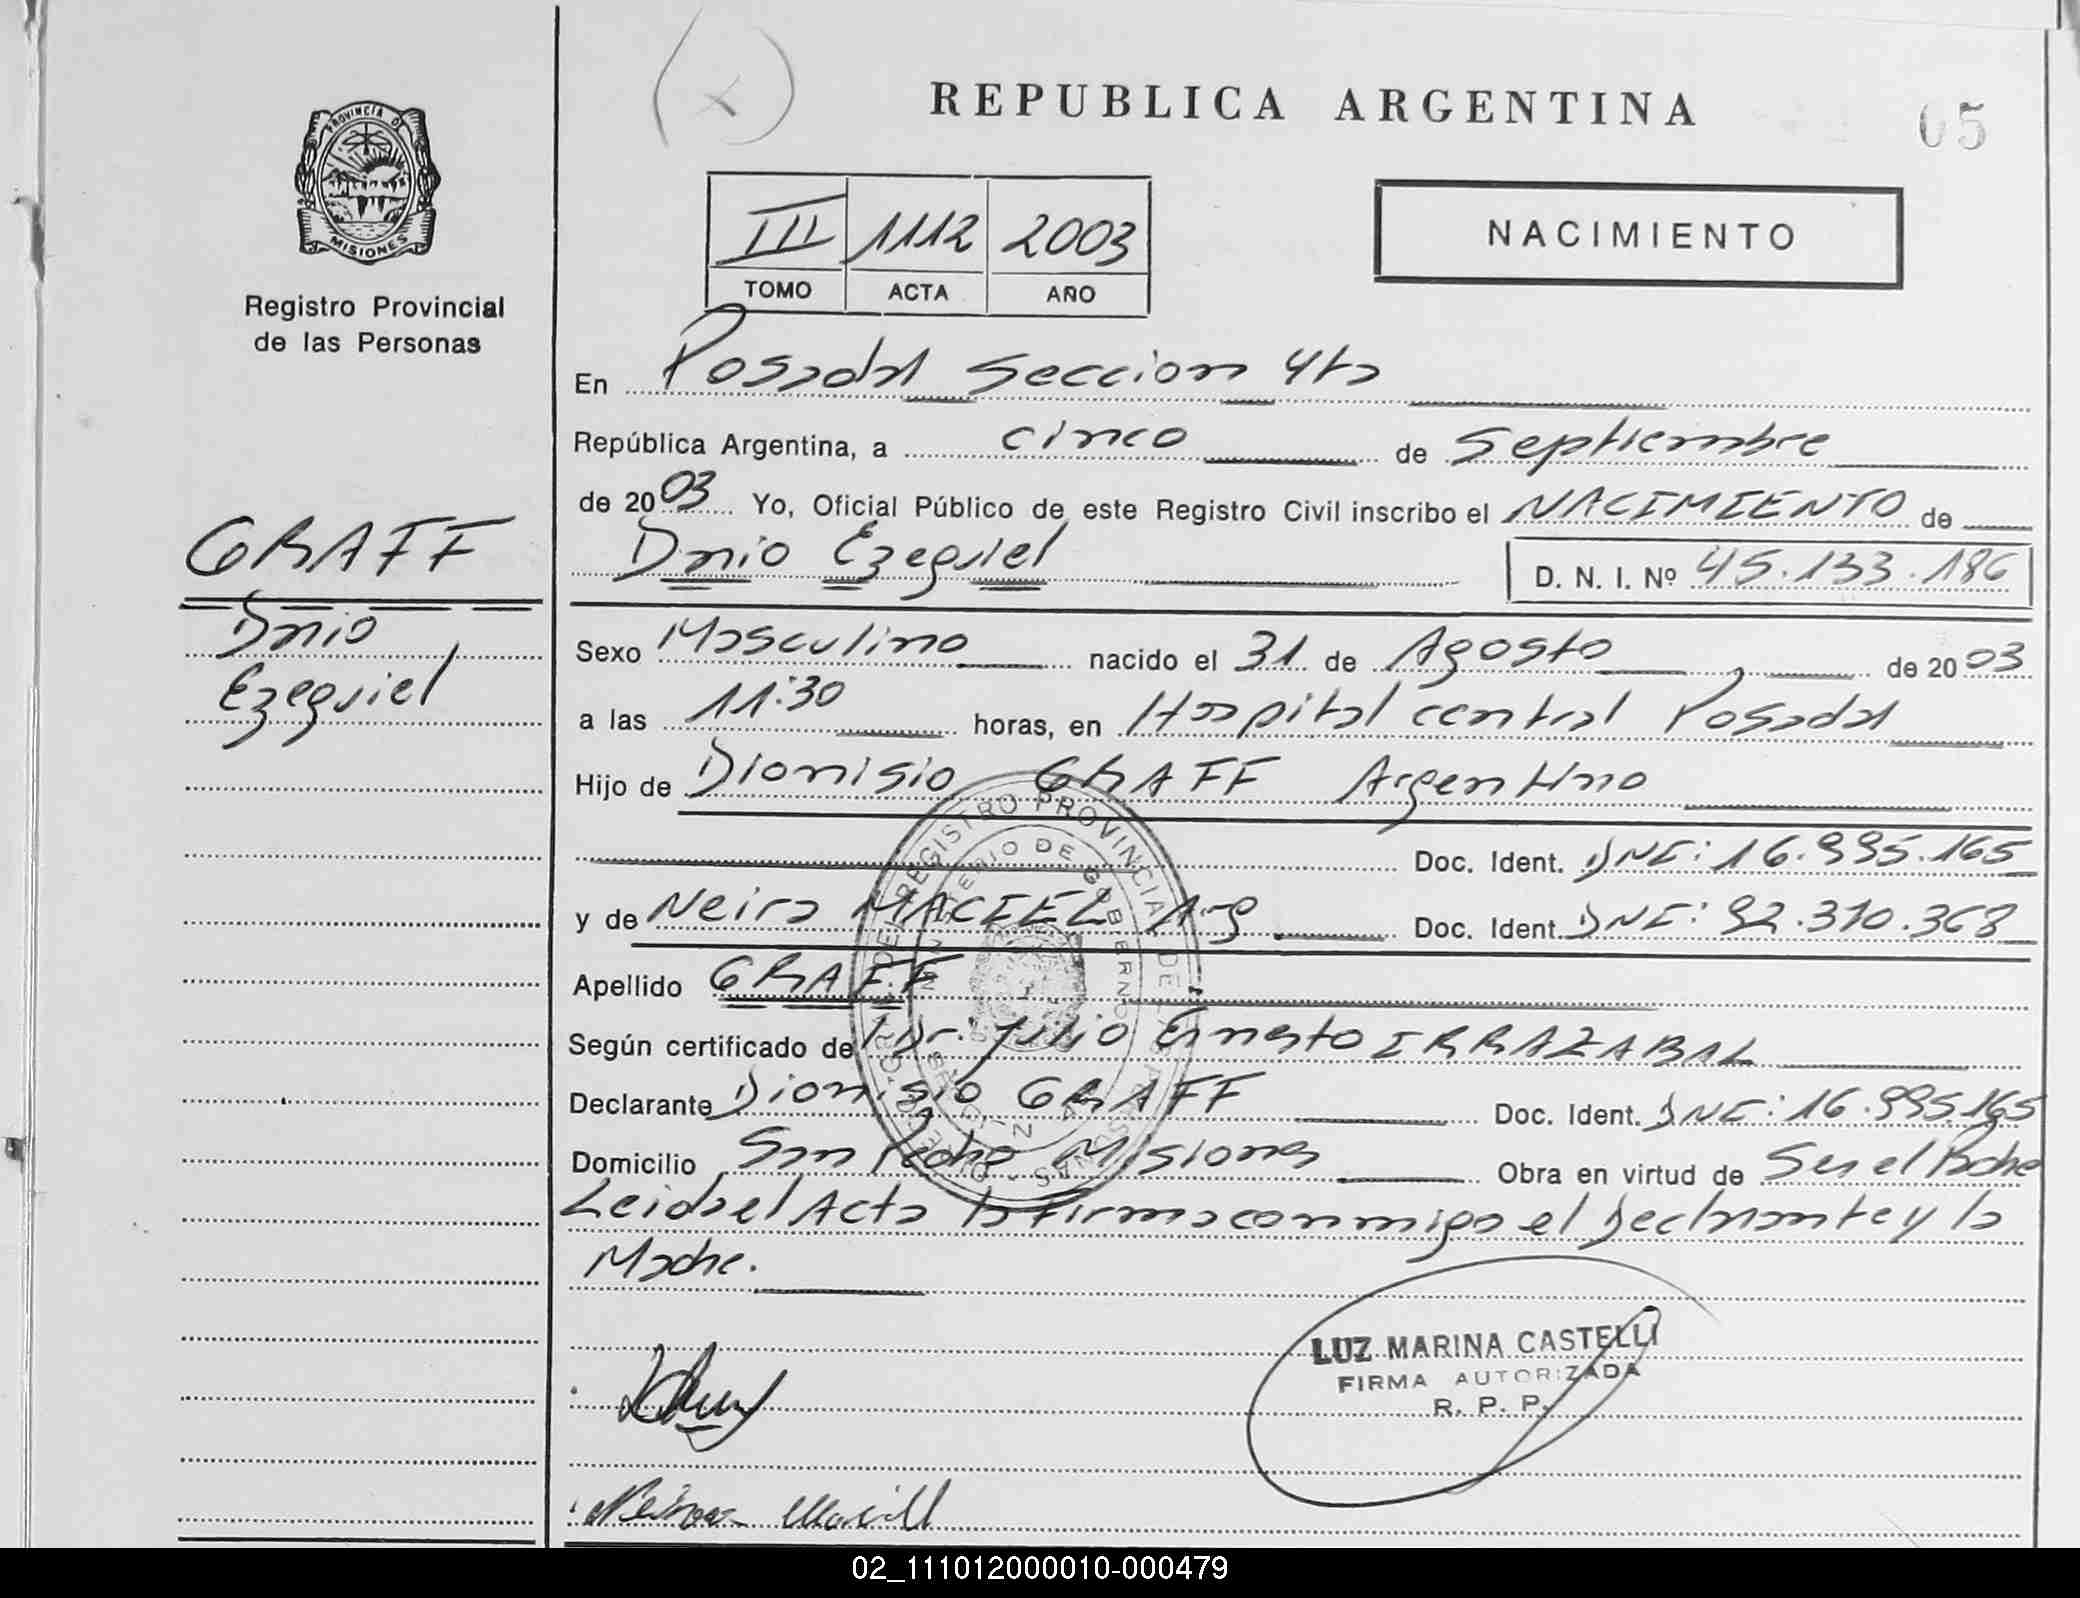 REPUBLICA ARGENTINA
05
PROVINCIA DE
MISIONES
Registro Provincial
de las Personas
III 1112 2003
TOMO ACTA AÑO
NACIMIENTO
En Posadas Seccion 4ta
República Argentina, a cinco de Septiembre
de 2003 Yo, Oficial Público de este Registro Civil inscribo el NACIMIENTO de
Dario Ezequiel D. N. I. Nº 45.133.186
GRAFF
Dario
Ezequiel
Sexo Masculino nacido el 31 de Agosto de 2003
a las 11:30 horas, en Hospital central Posadas
Hijo de Dionisio GRAFF Argentino
Doc. Ident. DNI: 16.995.165
y de Neira MACIEL Arg Doc. Ident. DNI: 92.370.368
Apellido GRAFF
Según certificado de Dr. Julio Ernesto IRRAZABAL
Declarante Dionisio GRAFF Doc. Ident. DNI: 16.995.165
Domicilio San Pedro Misiones Obra en virtud de Ser el Padre
Leida el Acta la firma conmigo el Declarante y la
Madre.
LUZ MARINA CASTELLI
FIRMA AUTORIZADA
R. P. P.
02_111012000010-000479